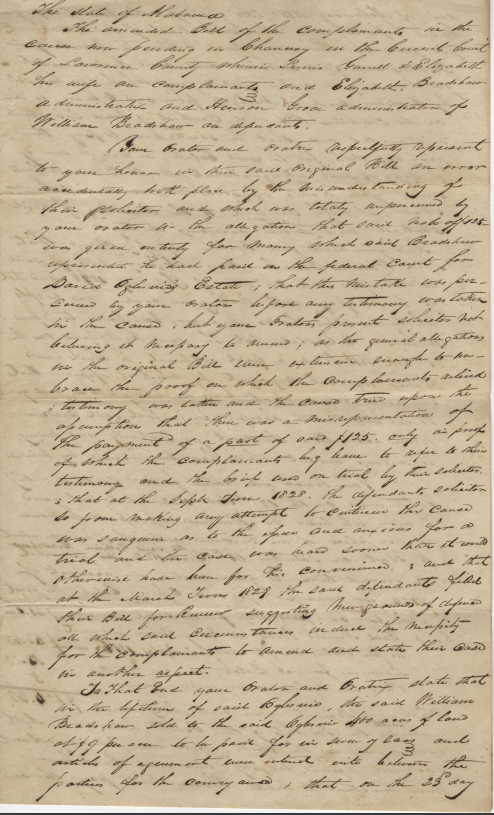 The state of Alabama
The amended Bill of the complainants in the
cause now pending in Chancery in the Circuit Court
of Lawrence County wherein Lewis Garrett & Elizabeth
his wife are complainants and Elizabeth Bradshaw
administratrix and Henson administrators of
William Bradshaw are defendants.
Your Orator and oratrix respectfully represent
to your honor in their said Original Bill an error
accidentally took place by the misunderstanding of
their solicitor and which was totally unperceived by
your orator in the allegation that said note of $125
was given entirely for money which said Bradshaw
represented he had paid in the federal Court for
David Estate ; that this mistake was per-
ceived by your Orator before any testimony was taken
in the cause ; but your Orators present solicitor not
believing it necessary to amend ; as the general allegations
in the original Bill were extensive enough to em-
brace the proof on which the complainants relied
; testimony was taken and the cause tried upon the
assumption that there was a misrepresentation of
the payment of a part of said $125 only in proof
of which the complainants beg leave to refer to their
testimony and the brief used on trial by their solicitor
; that at the Sept Term 1828. the defendants solicitor
so from making any attempt to continue the cause
was sanguine as to the and anxious for a
trial and the case was heard sooner than it would
otherwise have been for his convenience ; and that
at the March Term 1829 the said defendants filed
their Bill for Review suggesting their grounds of defence
all which said circumstances induce the necessity
for the complainants to amend and state their case
in another aspect.
To That End your Orator and Oratrix state that
in the lifetime of said the said William
Bradshaw sold to the said 400 acres of land
at $9 per acre to be paid for in seven years and
articles of agreement were entered into between the
parties for the conveyance ; that on the 25th day